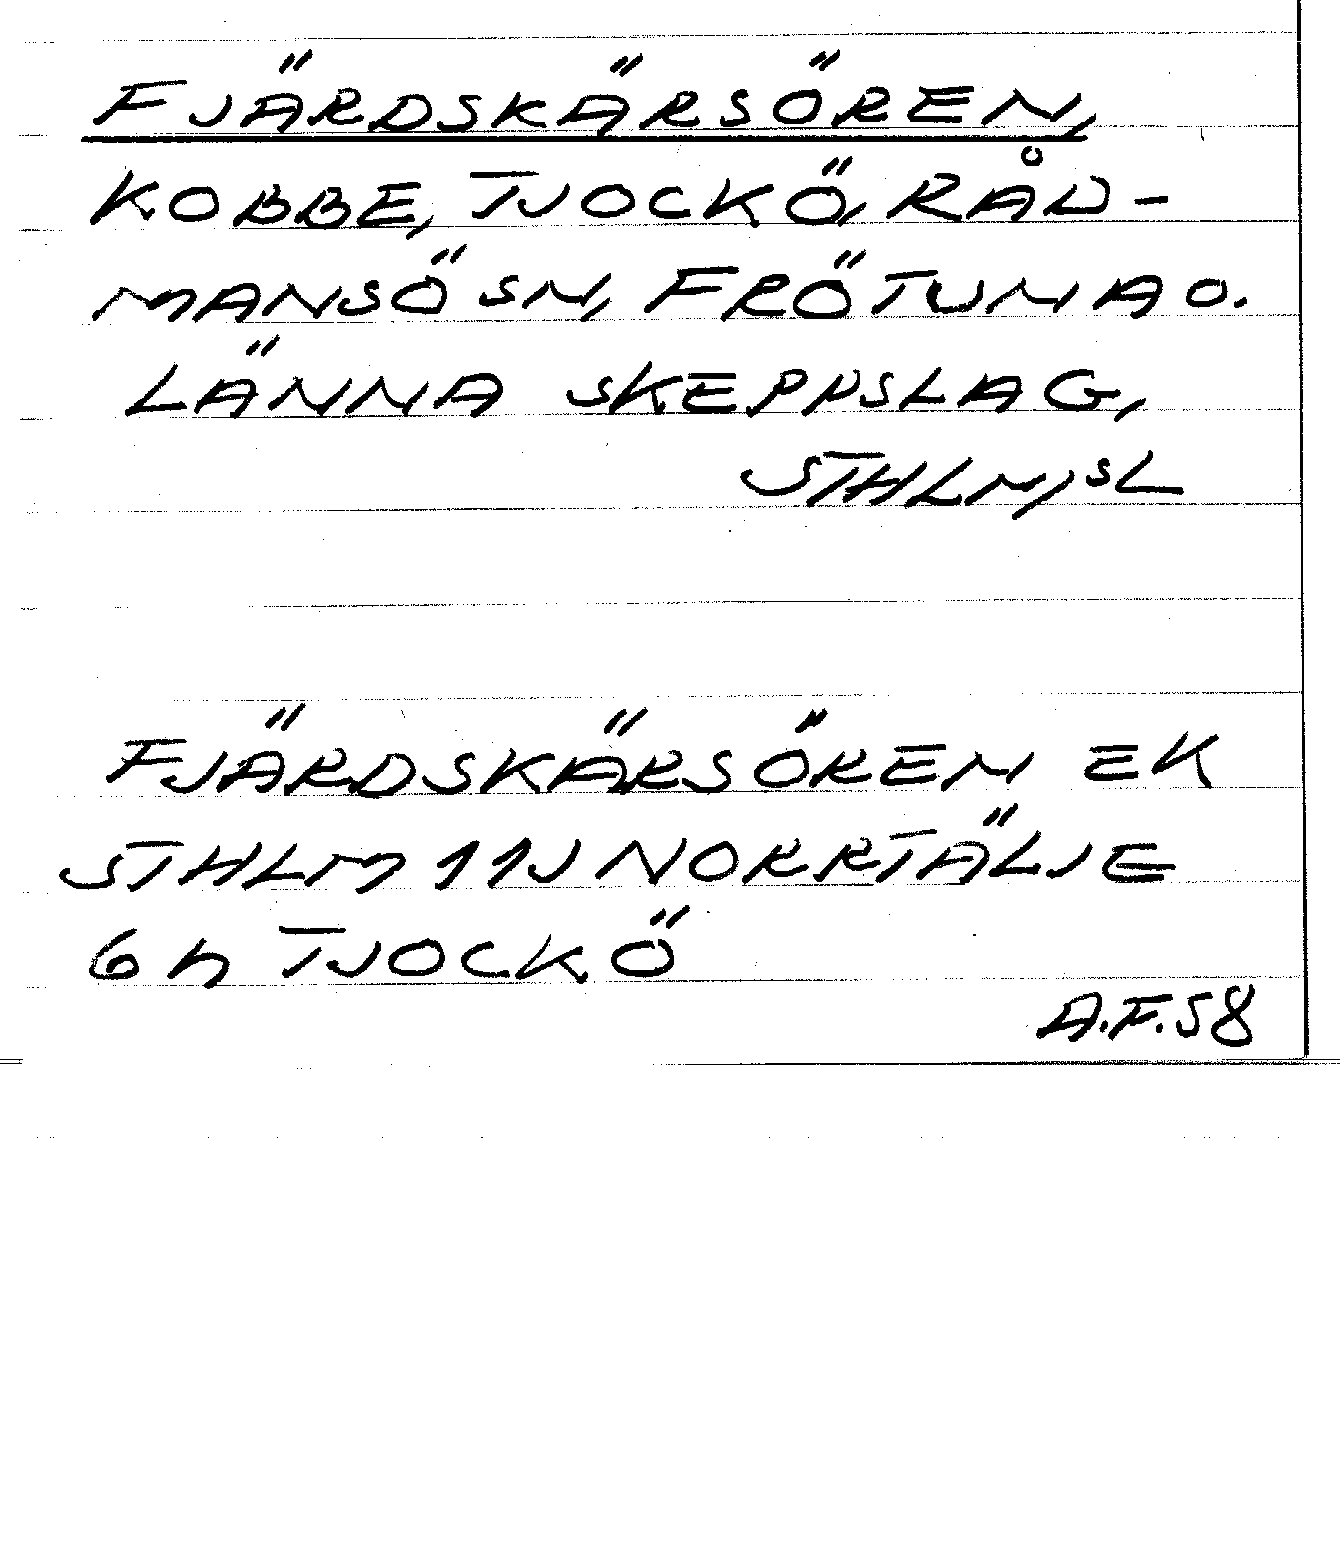 FJÄRDSKÄRSÖREN,
KOBBE, TJOCKÖ, RÅD-
MANSÖ SN, FRÖTUNA O.
LÄNNA SKEPPSLAG,
STHLM, SL
FJÄRDSKÄRSÖREN EK
STHLM 11J NORRTÄLJE
6h TJOCKÖ
A.F.58